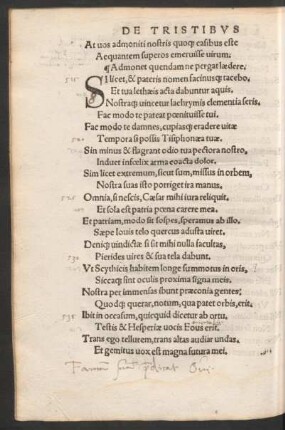 DE TRISTIBVS
At uos admoniti nostris quoq; casibus este
Aequantem superos emeruisse uirum.
¶Admonet quendam ne pergat lædere.
SI licet, & pateris nomen facinusq; tacebo,
Et tua lethæis acta dabuntur aquis.
Nostraq; uincetur lachrymis clementia seris,
Fac modo te pateat pœnituisse tui.
Fac modo te damnes, cupiasq; eradere uitæ
Tempora si possis Tisiphonæa tuæ.
Sin minus & flagrant odio tua pectora nostro,
Induet infœlix arma coacta dolor.
Sim licet extremum, sicut sum, missus in orbem,
Nostra suas isto porriget ira manus.
Omnia, si nescis, Cæsar mihi iura reliquit,
Et sola est patria pœna carere mea.
Et patriam, modo sit sospes, speramus ab illo,
Sæpe Iouis telo quercus adusta uiret.
Deniq; uindictæ si sit mihi nulla facultas,
730
Pierides uires & sua tela dabunt.
Vt Scythicis habitem longe summotus in oris,
Siccaq; sint oculis proxima signa meis.
Nostra per immensas ibunt præconia gentes,
Quodq; querar, notum, qua patet orbis, erit.
735
Ibit in occasum, quicquid dicetur ab ortu,
Testis & Hesperiæ uocis Eous erit.
Trans ego tellurem, trans altas audiar undas,
Et gemitus uox est magna futura mei.